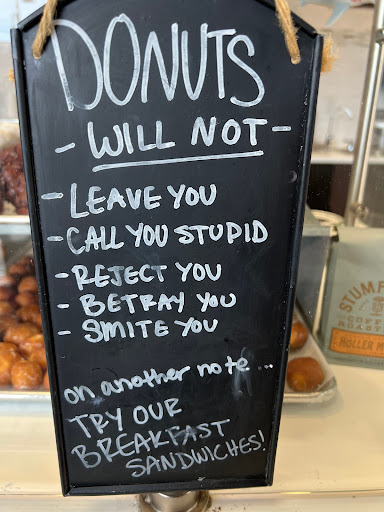 DONUTS
- WILL NOT -
- LEAVE YOU
- CALL YOU STUPID
- REJECT YOU
- BETRAY YOU
- SMITE YOU
on another note ...
TRY OUR
BREAKFAST
SANDWICHES!
STUMP
COFFEE
ROAST
HOLLER M